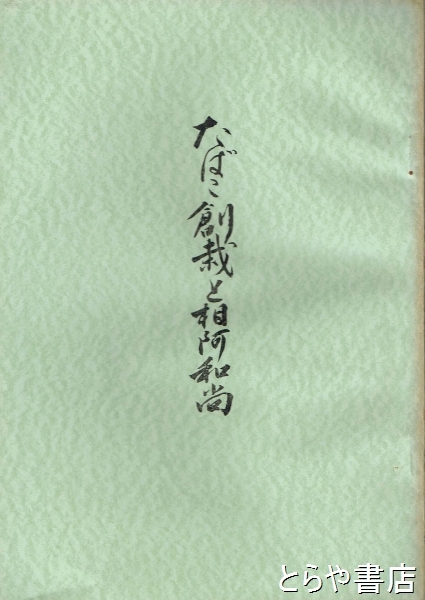 たばこ創栽と相阿和尚
とらや書店